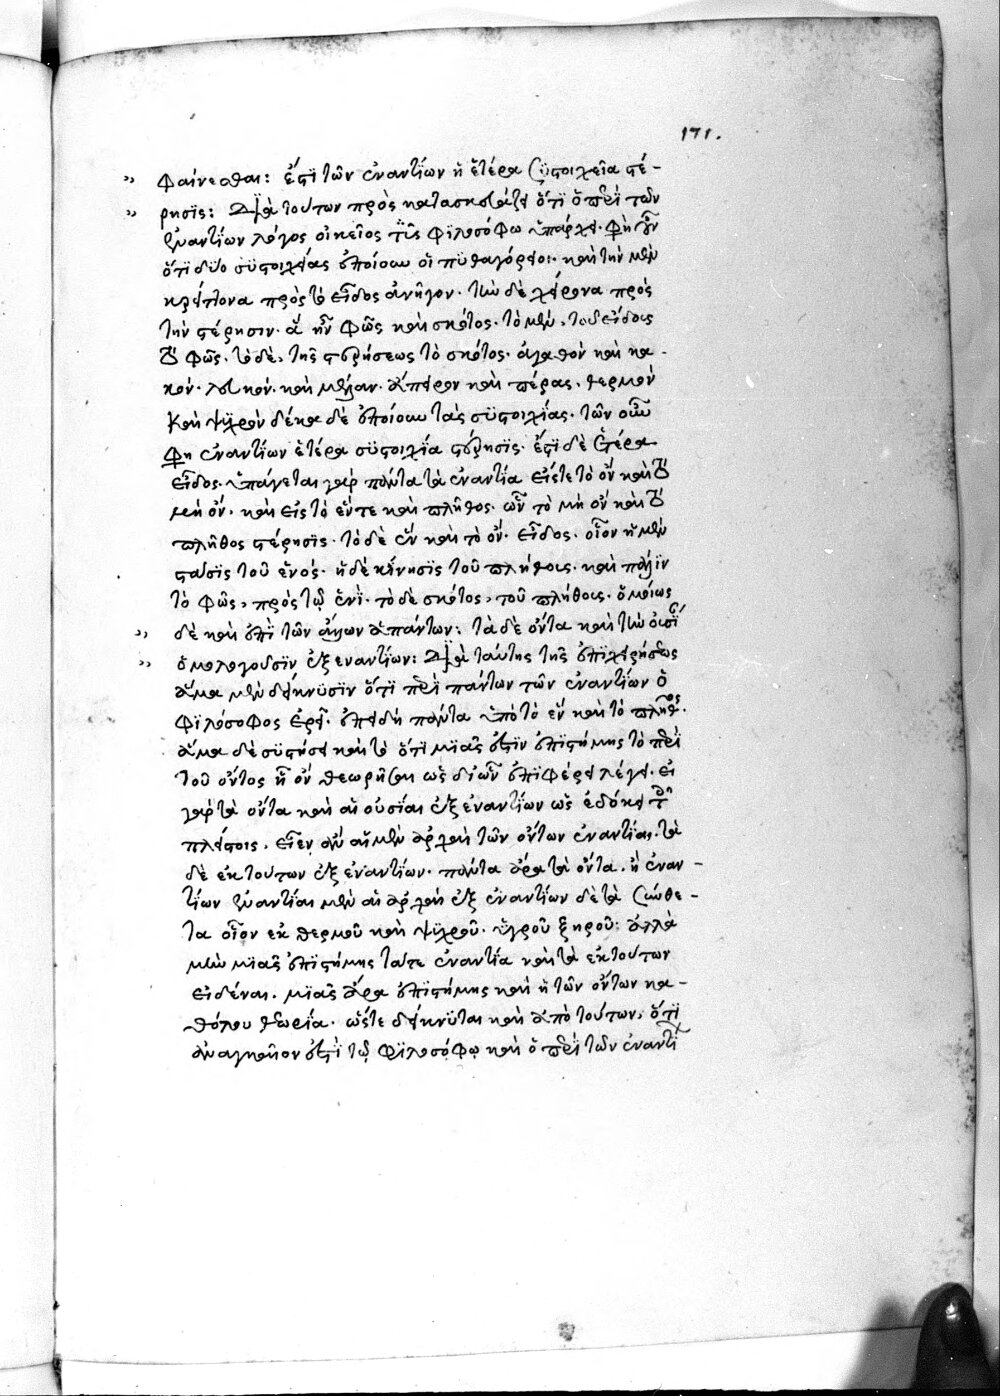 171.
φαίνεσθαι: ἔτι τῶν ἐναντίων ἡ ἑτέρα συστοιχεῖα στέ-
ρησις: Διὰ τούτων πρὸς κατασκευάζει ὅτι ὁ περὶ τῶν
ἐναντίων λόγος οἰκεῖος τῶ φιλοσόφω ὑπάρχει. φησὶ γοῦν
ὅτι δύο συστοιχείας ἐποίουν οἱ πυθαγόρειοι. καὶ τὴν μὲν
κρείττονα πρὸς τὸ εἶδος ἀνῆγον. τὴν δὲ χείρονα πρὸς
τὴν στέρησιν. ἃ ἦν φῶς καὶ σκότος. τὸ μὲν, τοῦ εἴδους
τὸ φῶς. τὸ δὲ, τῆς στερήσεως τὸ σκότος. ἀγαθὸν καὶ κα-
κόν. λευκόν. καὶ μέλαν. ἄπειρον καὶ πέρας. θερμὸν
καὶ ψυχρὸν δέκα δὲ ἐποίουν τὰς συστοιχίας. τῶν οὖν
φησὶ ἐναντίων ἑτέρα συστοιχία στέρησις. ἔστι δὲ ἑτέρα
εἶδος. ὑπάγεται γὰρ πάντα τὰ ἐναντία εἴς τε τὸ ὂν καὶ τὸ
μὴ ὄν. καὶ εἰς τὸ ἕν τε καὶ πλῆθος. ὧν τὸ μὴ ὂν καὶ τὸ
πλῆθος στέρησις. τὸ δὲ ἓν καὶ τὸ ὂν. εἶδος. οἷον ἡ μὲν
στάσις τοῦ ἑνός. ἡ δὲ κίνησις τοῦ πλήθους. καὶ πάλιν
τὸ φῶς, πρὸς τῷ ἑνί. τὸ δὲ σκότος, τοῦ πλήθους. ὁμοίως
δὲ καὶ ἐπὶ τῶν ἄλλων ἁπάντων: τὰ δὲ ὄντα καὶ τὴν οὐσί
ὁμολογοῦσιν ἐξ ἐναντίων: Διὰ ταύτης τῆς ἐπιχειρήσεως
ἅμα μὲν δείκνυσιν ὅτι περὶ πάντων τῶν ἐναντίων ὁ
φιλόσοφος ἐρεῖ. ἐπειδὴ πάντα ὑπὸ τὸ ἓν καὶ τὸ πλῆθος.
ἅμα δὲ συστήσει καὶ τὸ ὅτι μιᾶς ἐστὶν ἐπιστήμης τὸ περὶ
τοῦ ὄντος ᾗ ὂν θεωρῆσαι ὡς δι' ὧν ἐπιφέρει λέγει. εἰ
γὰρ τὰ ὄντα καὶ αἱ οὐσίαι ἐξ ἐναντίων ὡς ἐδόκει τοῖς
πλείστοις. εἶεν ἂν αἱ μὲν ἀρχαὶ τῶν ὄντων ἐναντίαι. τὰ
δὲ ἐκ τούτων ἐξ ἐναντίων. πάντα ἄρα τὰ ὄντα. ἢ ἐναν-
τίων ἐναντίαι μὲν αἱ ἀρχαί ἐξ ἐναντίων δὲ τὰ σύνθε-
τα οἷον ἐκ θερμοῦ καὶ ψυχροῦ. ὑγροῦ ξηροῦ: ἀλλὰ
μὴν μιᾶς ἐπιστήμης τά τε ἐναντία καὶ τὰ ἐκ τούτων
εἰδέναι. μιᾶς ἄρα ἐπιστήμης καὶ ἡ τῶν ὄντων κα-
θόλου θεωρία. ὥστε δείκνυται καὶ ἀπὸ τούτων, ὅτι
ἀναγκαῖον ἐστὶ τῷ φιλοσόφῳ καὶ ὁ περὶ τῶν ἐναντί